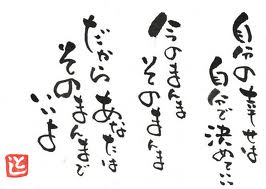 自分の幸せは
自分で決めていい
今のまんま
そのまんま
だから あなたは
そのまんまで
いいよ